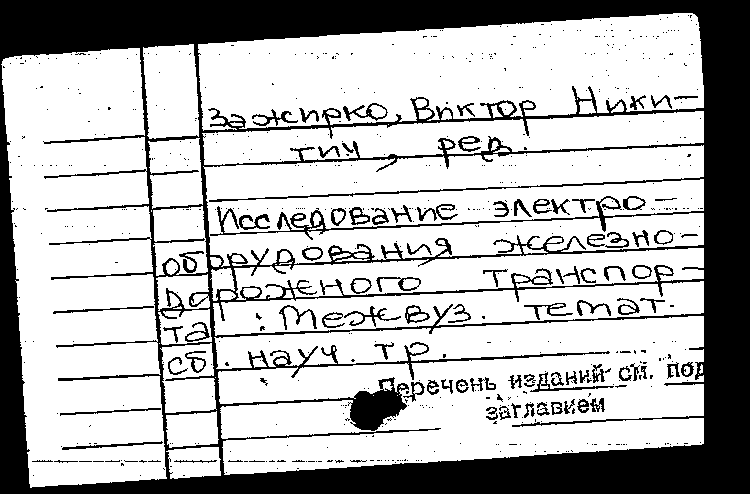 Зажирко, Виктор Ники-
тич, ред.
Исследование электро-
оборудования железно-
дорожного транспор-
та : Межвуз. темат.
сб. науч. тр.
Перечень изданий см. под
заглавием